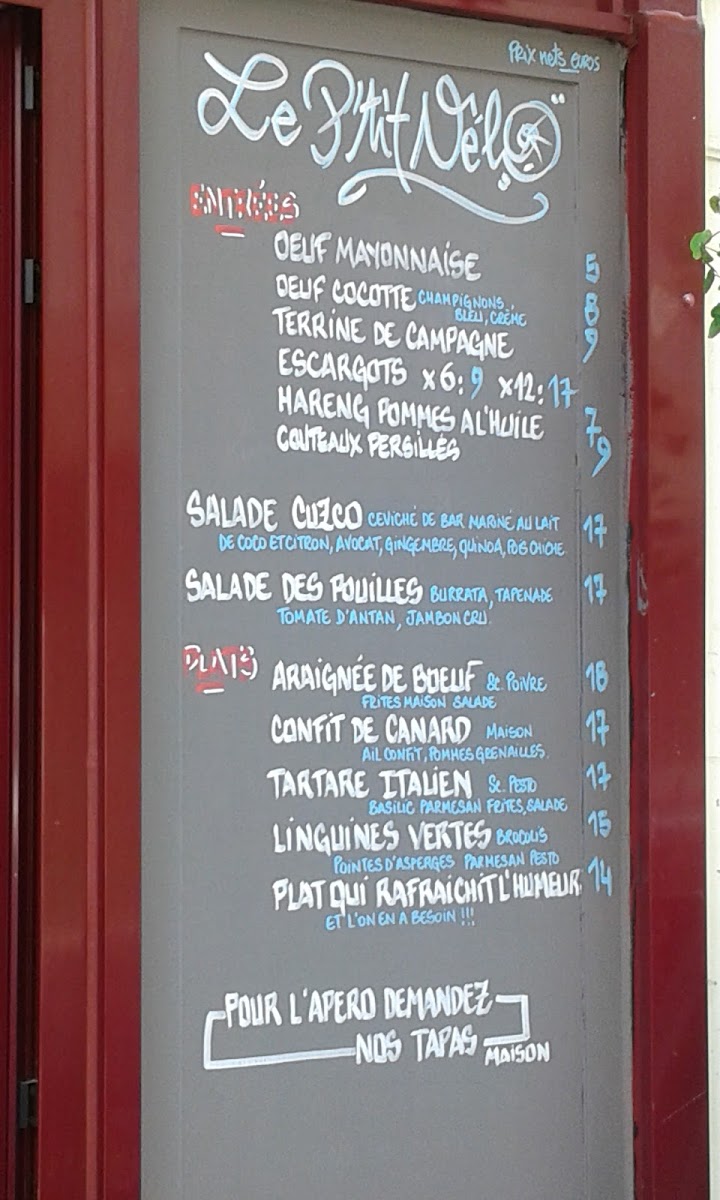 PRIX nets euros
Le P'tit Vélo
ENTRÉES
OEUF MAYONNAISE 5
OEUF COCOTTE CHAMPIGNONS, 8
BLEU, CRÈME
TERRINE DE CAMPAGNE 9
ESCARGOTS x6: 9 x12: 17
HARENG POMMES A L'HUILE 7
COUTEAUX PERSILLÉS 9
SALADE CUZCO CEVICHÉ DE BAR MARINÉ AU LAIT 17
DE COCO ET CITRON, AVOCAT, GINGEMBRE, QUINOA, POIS CHICHE
SALADE DES POUILLES BURRATA, TAPENADE 17
TOMATE D'ANTAN, JAMBON CRU.
PLATS
ARAIGNÉE DE BOEUF Sc. POIVRE 18
FRITES MAISON SALADE
CONFIT DE CANARD MAISON 17
AIL CONFIT, POMMES GRENAILLES.
TARTARE ITALIEN Sc. PESTO 17
BASILIC PARMESAN FRITES, SALADE
LINGUINES VERTES BROCOLIS 15
POINTES D'ASPERGES PARMESAN PESTO
PLAT QUI RAFRAICHIT L'HUMEUR 14
ET L'ON EN A BESOIN !!!
POUR L'APERO DEMANDEZ
NOS TAPAS MAISON